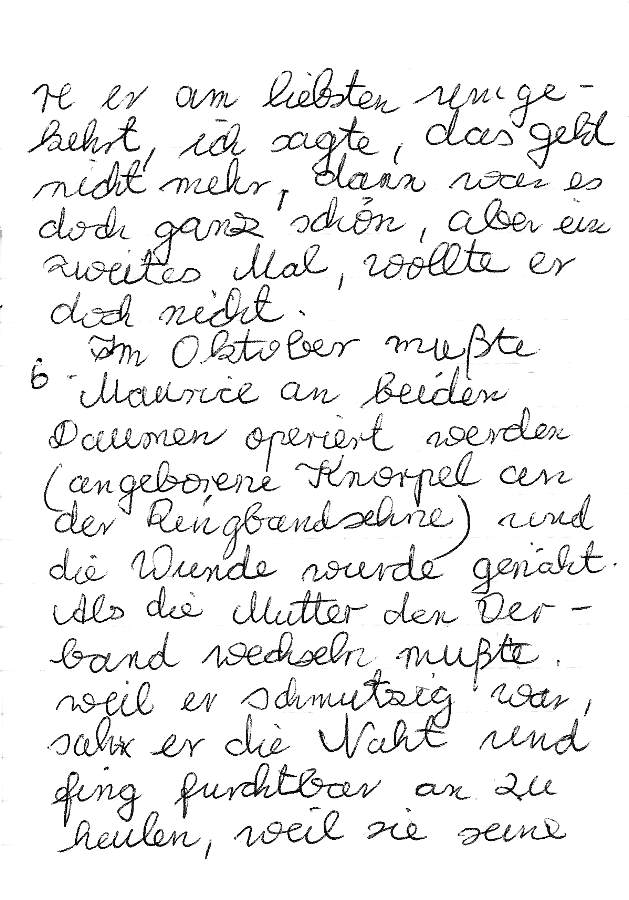 re er am liebsten umge-
kehrt, ich sagte, das geht
nicht mehr, dann war es
doch ganz schön, aber ein
zweites Mal, wollte er
doch nicht.
Im Oktober mußte
6 Maurice an beiden
Daumen operiert werden
(angeborene Knorpel an
der Ringbandsehne) und
die Wunde wurde genäht.
Als die Mutter den Ver-
band wechseln mußte,
weil er schmutzig war,
sah er die Naht und
fing furchtbar an zu
heulen, weil sie seine